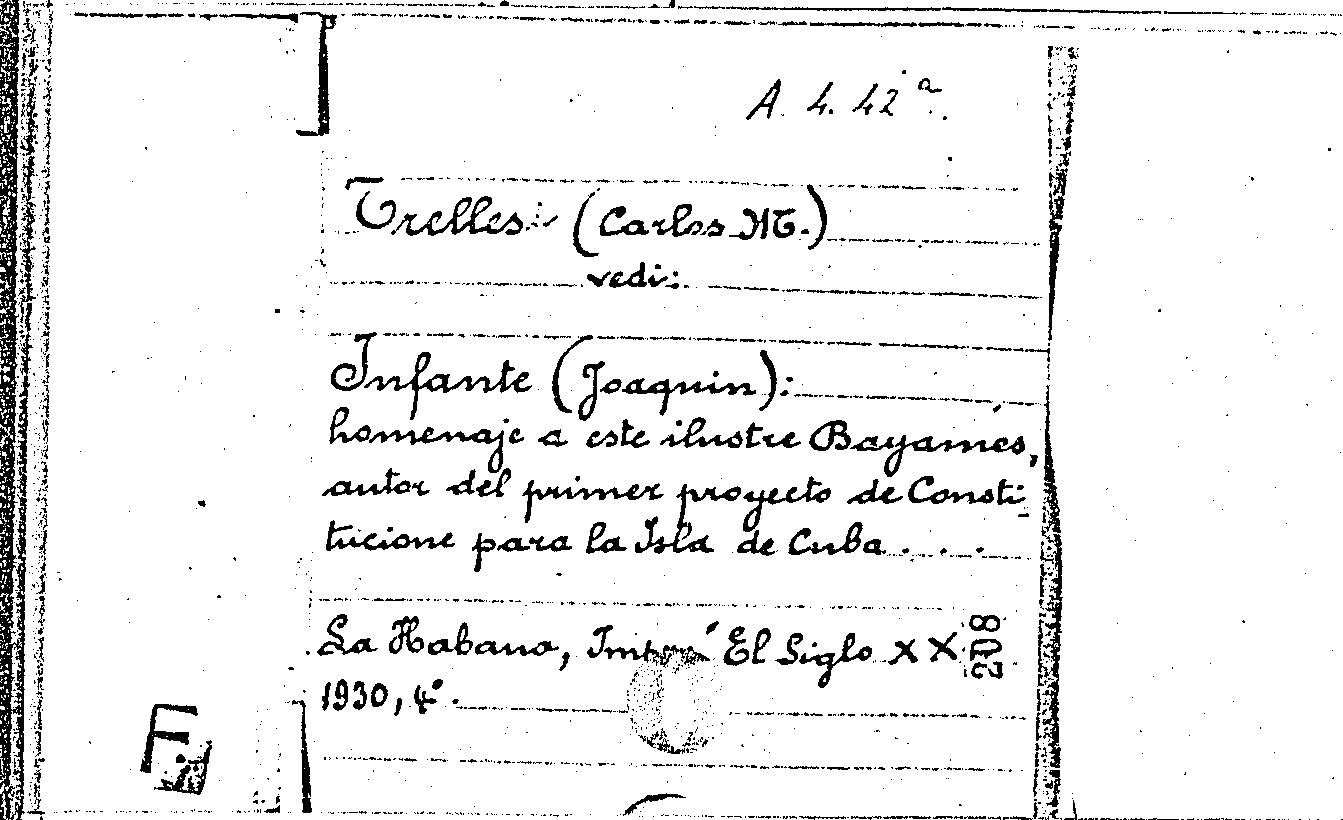 A. 4. 42ª.
Trelles (Carlos M.)
vedi:
Infante (Joaquin):
homenaje a este ilustre Bayamés,
autor del primer proyecto de Consti_
tucione para la Isla de Cuba . . .
La Habana, El Siglo XX
208
1930, 4º.
F